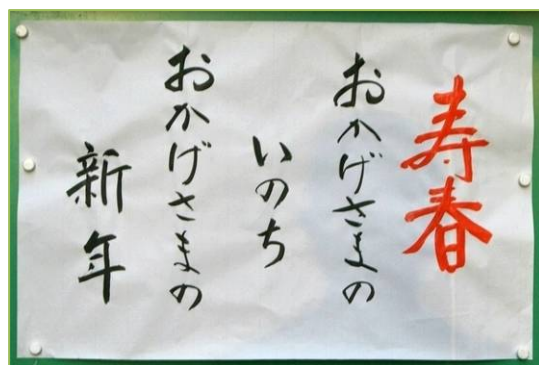 寿春
おかげさまの
いのち
おかげさまの
新年